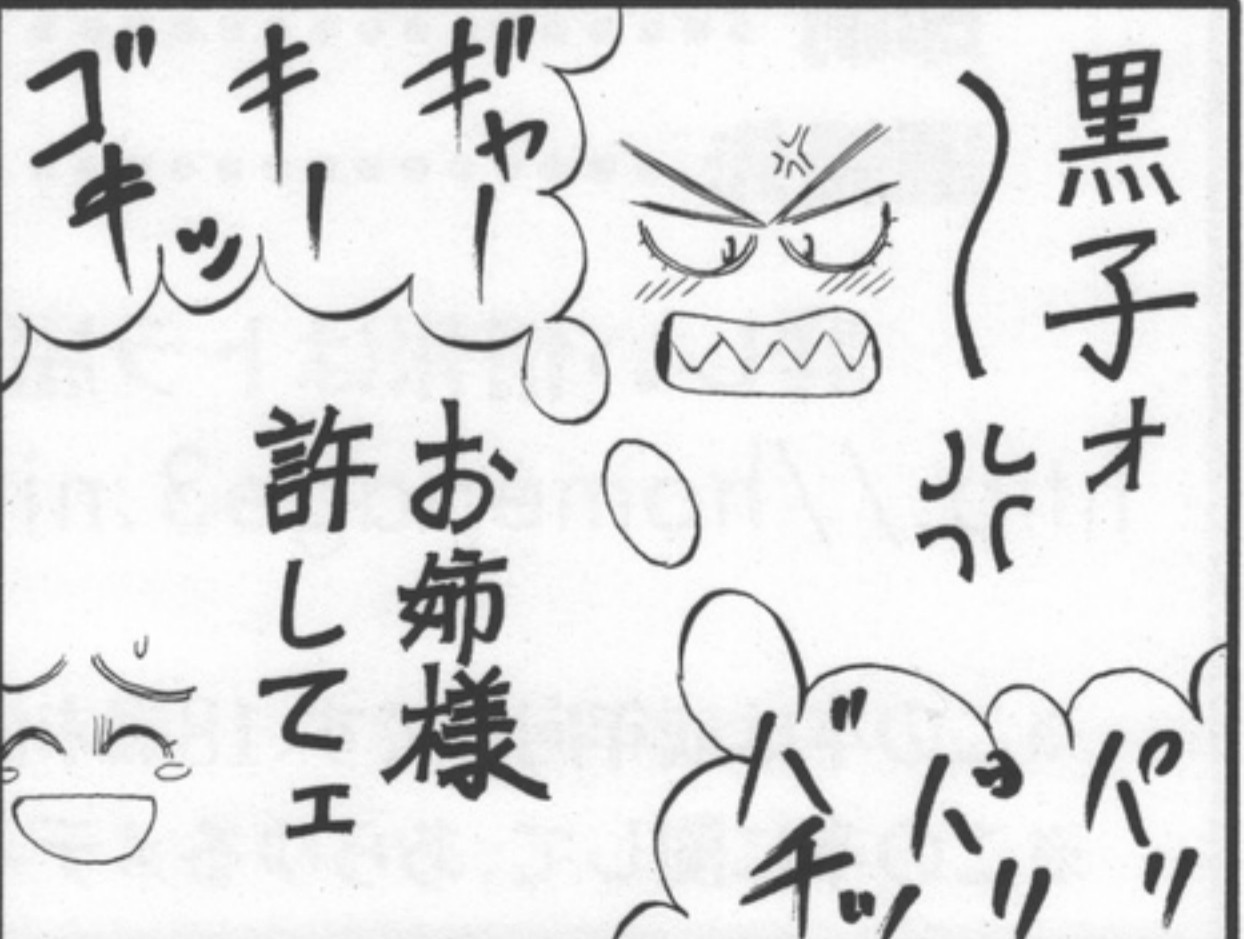 黒子ォ〜
ギャー
キー
ゴキッ
お姉様
許してェ
パリ
バリ
バチッ